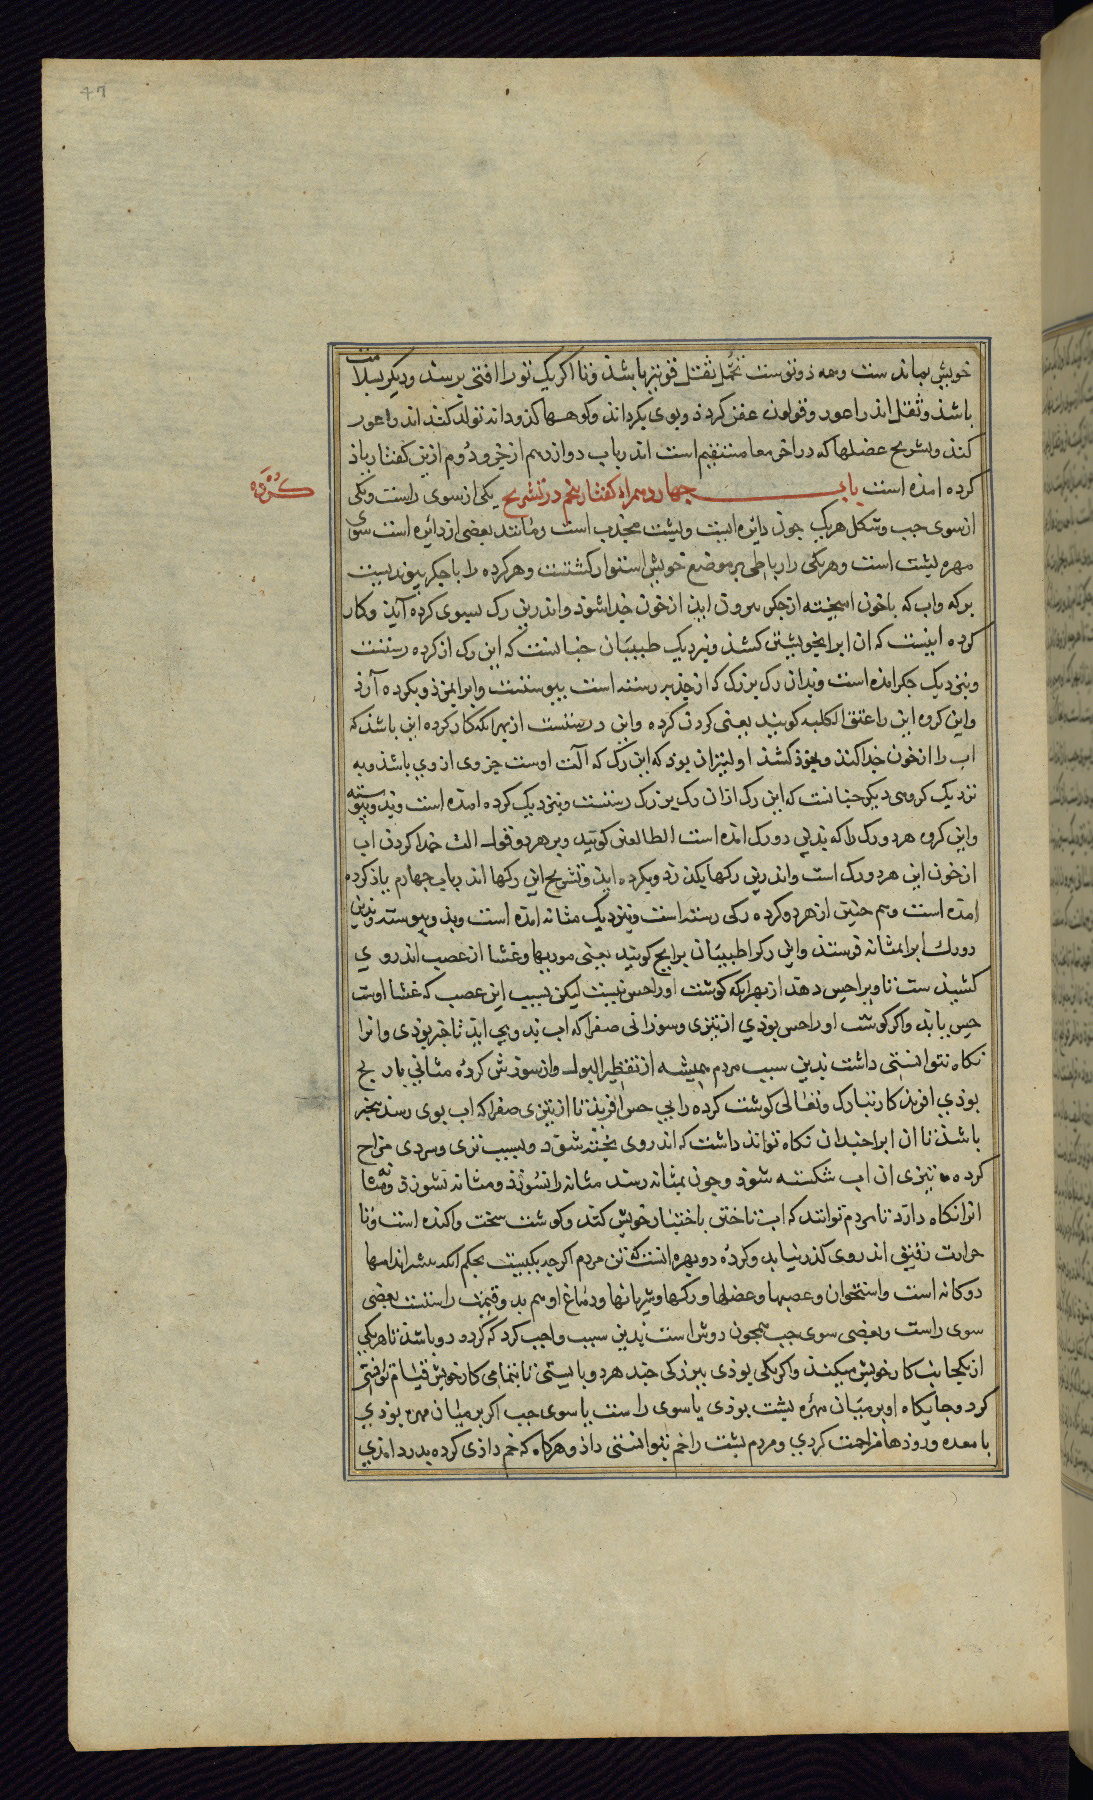 47
خویش بماندست و همه دو توست تحمل ثقل قوی‌تر باشد و تا اگر یک تو را افتی برسد و دیگر بسلامت
باشد و ثقل اندر اعور و قولون عفن کردد و بوی بکرداند و کوهها کذودانه تولد کند اندر اعور
کند و تشریح عضلها که در اخر معا مستقیم است اندر باب دوازدهم از جزو دوم ازین کفتار یاذ
کرده امذه است باب جهاردهم از کفتار پنجم در تشریح یکی از سوی راست و یکی
کرده
از سوی جب و شکل هر یک جون دایره است و پشت محدب است و مانند بعضی از دایره است سوی
مهره پشت است و هر یکی را رباطی بر موضع خویش استوار کشتست و هر کرده را با جکر پیوندیست
برکه واب که باخون امیخته از جکر بیرون اید از خون جدا شود و اندرین رک بسوی کرده آید و کار
کرده اینست که ان اب را بخویشتن کشذ و نزدیک طبیبان جنانست که این رک از کرده رستست
و بنزدیک جکر امذه است و بدان رک بزرک که از حدبه رسته است بپیوستست واب را بمزذ و بکرده آرذ
و این کروه این را عنق الکلیه کویند یعنی کردن کرده و این درستست از بهر انکه کار کرده این باشد که
اب را از خون جدا کند و بخوذ کشذ اولیتر ان بوذ که این رک که آلت اوست جزوی از وی باشذ و به
نزدیک کروهی دیکر جنانست که این رک از ان رک بزرک رستست و بنزدیک کرده امذه است و بذو پیوسته
و این کروه هر دو رک را که بذین دو رک امذه است الطالعین کویند و بر هر دو قول الت جدا کردن اب
از خون این هر دو رک است و اندرین رکها یکذرد و بکرده اید و تشریح این رکها اندر باب جهارم یاذ کرده
امذه است و هم جنین از هر دو کرده رکی رسته است و بنزدیک مثانه امذه است و بذو پیوسته و بذین
دو رک اب را بمثانه فرستند و این رک را طبیبان برابخ کویند یعنی موریها و غشا از عصب اندر وی
کشیذست تا ویرا حس دهد از بهر انکه کوشت او را حس نیست لیکن بسبب این عصب که غشا اوست
حس یابد و اکر کوشت او را حس بوذی از تیزی و سوزانی صفرا که اب بذو می اید تا خبر بوذی و انرا
نکاه نتوانستی داشت بذین سبب مردم همیشه از تقطیر البول و از سوزش کرده مثانی با رنج
بوذی افریذکار تبارک و تعالی کوشت کرده را بی حس افریذ تا از تیزی صفرا که اب بوی رسذ بیخبر
باشذ تا ان اب را جندان نکاه تواند داشت که اندر وی پخته شود و بسبب تری و سردی مزاج
کرده تیزی ان اب شکسته شوذ و جون بمثانه رسد مثانه را نسوزد و مثانه نشوزد و مثانه
انرا نکاه دارد تا مردم توانند که اب تاختن باختیار خویش کنند و کوشت سخت واکنده است و تا
حرارت رقیق اندر وی کذر نیابد و کرده دو بهره انست که تن مردم اکرجه یکیست بحکم انکه بیشتر اندامها
دوکانه است و استخوان و عصبها و عضلها و رکها و شریانها و دماغ او هم بدو قسمت راستست بعضی
سوی راست و بعضی سوی جب همجون دوش است بذین سبب واجب کرد که کرده دو باشذ تا هر یکی
از یکجانب کار خویش میکند و اکر یکی بوذی ببزرکی جند هر دو بایستی تا بتمامی کار خویش قیام توانستی
کرد و جایکاه او بر میان مهره پشت بوذی یا سوی راست یا سوی جب اکر بر میان مهره بوذی
با معده و روذها مزاحمت کردی و مردم پشت را خم نتوانستی داذ و هرکاه که خم داذی کرده بدرد امذی